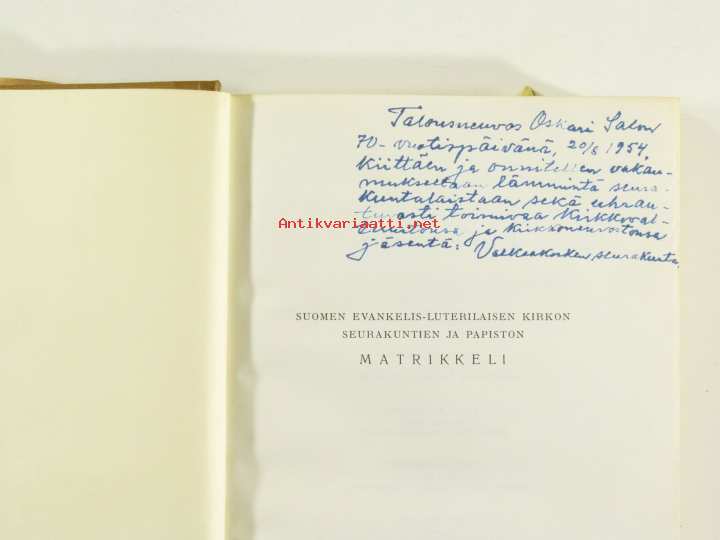 Talousneuvos Oskari Salon
70-vuotispäivänä, 20/8 1954,
kiittäen ja onnitellen vakau-
mukseltaan lämmintä seura-
kuntalaistaan sekä uhrau-
tuvasti toimivaa kirkkoval-
tuustonsa ja kirkkoneuvostonsa
jäsentä: Valkeakosken seurakunta.
Antikvariaatti.net
SUOMEN EVANKELIS-LUTERILAISEN KIRKON
SEURAKUNTIEN JA PAPISTON
MATRIKKELI